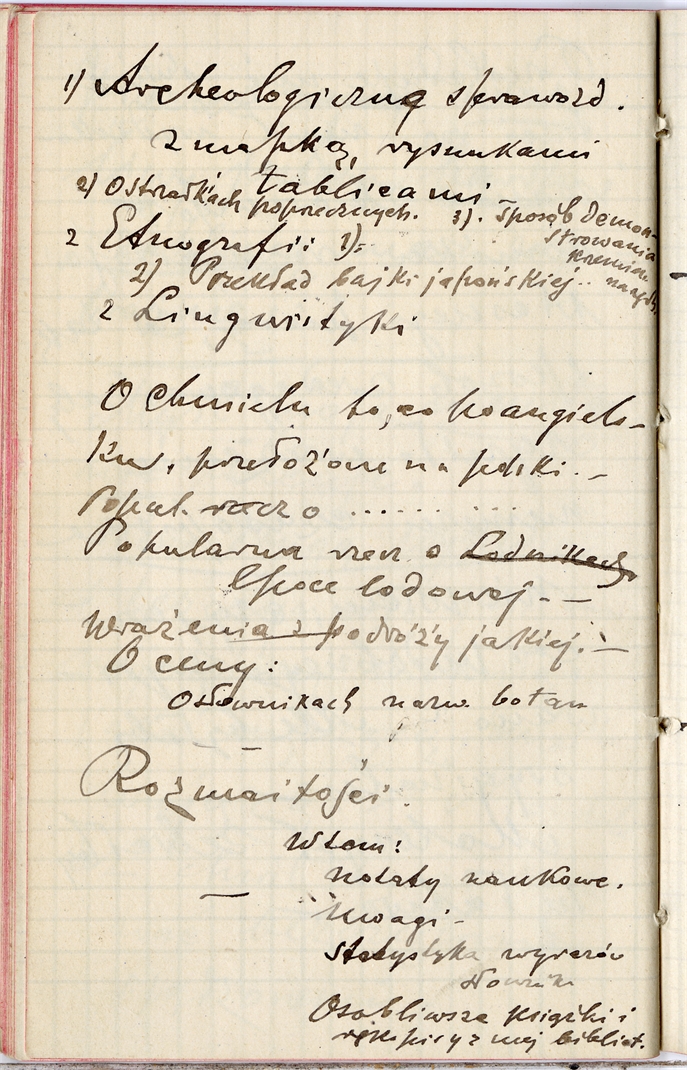 1) Archeologiczną sprawozd.
z mapką, rysunkami
tablicami
2) O strzałkach poprzecznych. 3). Sposób demon-
strowania
krzemien
z Etnografii 1)
2) Przekład bajki japońskiej..
z Lingwistyki
O Chmielu to, co po angiels-
ku, przełożone na polski. –
Popul. rzecz o ...... ...
Popularna rzecz o Lodnikach
Epoce lodowej. –
Wrażenia z podróży jakiej. –
Oceny:
O słownikach nazw. botan
Rozmaitości.
W tem:
notaty naukowe.
Uwagi –
Statystyka wyrazów
Słownik
Osobliwsze książki i
rękopisy z mej bibliot.